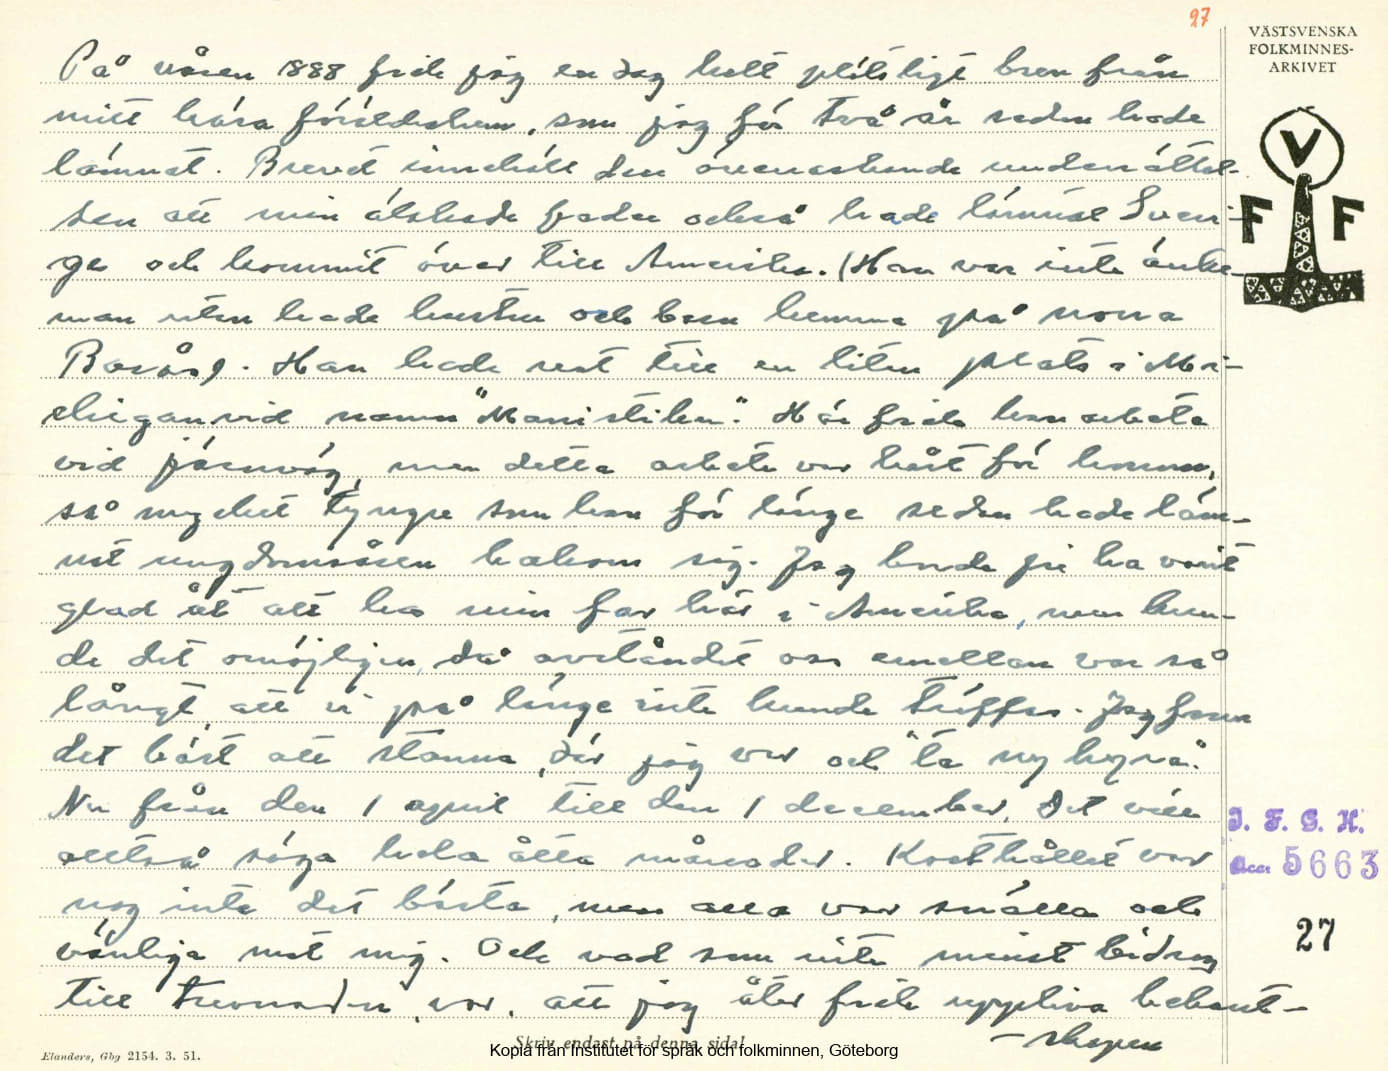 27
VÄSTSVENSKA
FOLKMINNES-
ARKIVET
V
F F
På våren 1888 fick jag en dag helt plötsligt brev från
mitt kära föräldrahem, som jag för två år sedan hade
lämnat. Brevet innehöll den överraskande underrättel-
sen att min älskade fader också hade lämnat Sveri-
ge och kommit över till Amerika. (Han var inte änke-
man utan hade hustru och barn hemma på norra
Boråsg. Han hade rest till en liten plats i Mi-
chigan vid namn "Manistiken". Här fick han arbete
vid järnväg, men detta arbete var hårt för honom,
så mycket tyngre som han för länge sedan hade läm-
nat ungdomsåren bakom sig. Jag borde ju ha varit
glad åt att ha min far här i Amerika, men kun-
de det omöjligen, då avståndet oss emellan var så
långt, att vi på länge inte kunde träffas. Jag fann
det bäst att stanna, där jag var och "ta ny hyra".
Nu från den 1 april till den 1 december. Det vill
alltså säga hela åtta månader. Kosthållet var
nog inte det bästa, men alla var snälla och
vänliga mot mig. Och vad som inte minst bidrog
till trevnaden, var, att jag åter fick uppliva bekant-
- skapen
I. F. G. H.
Acc. 5663
27
Elanders, Gbg 2154. 3. 51.
Skriv endast på denna sida!
Kopia från Institutet för språk och folkminnen, Göteborg